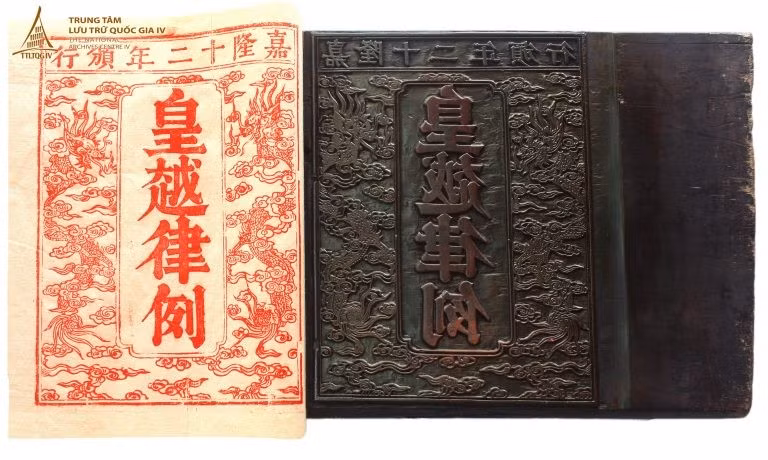 TRUNG TÂM
LƯU TRỮ QUỐC GIA IV
THE NATIONAL
ARCHIVES CENTRE IV
TTLTQG IV
嘉隆十二年頒行
皇越律例
嘉隆十二年頒行
皇越律例